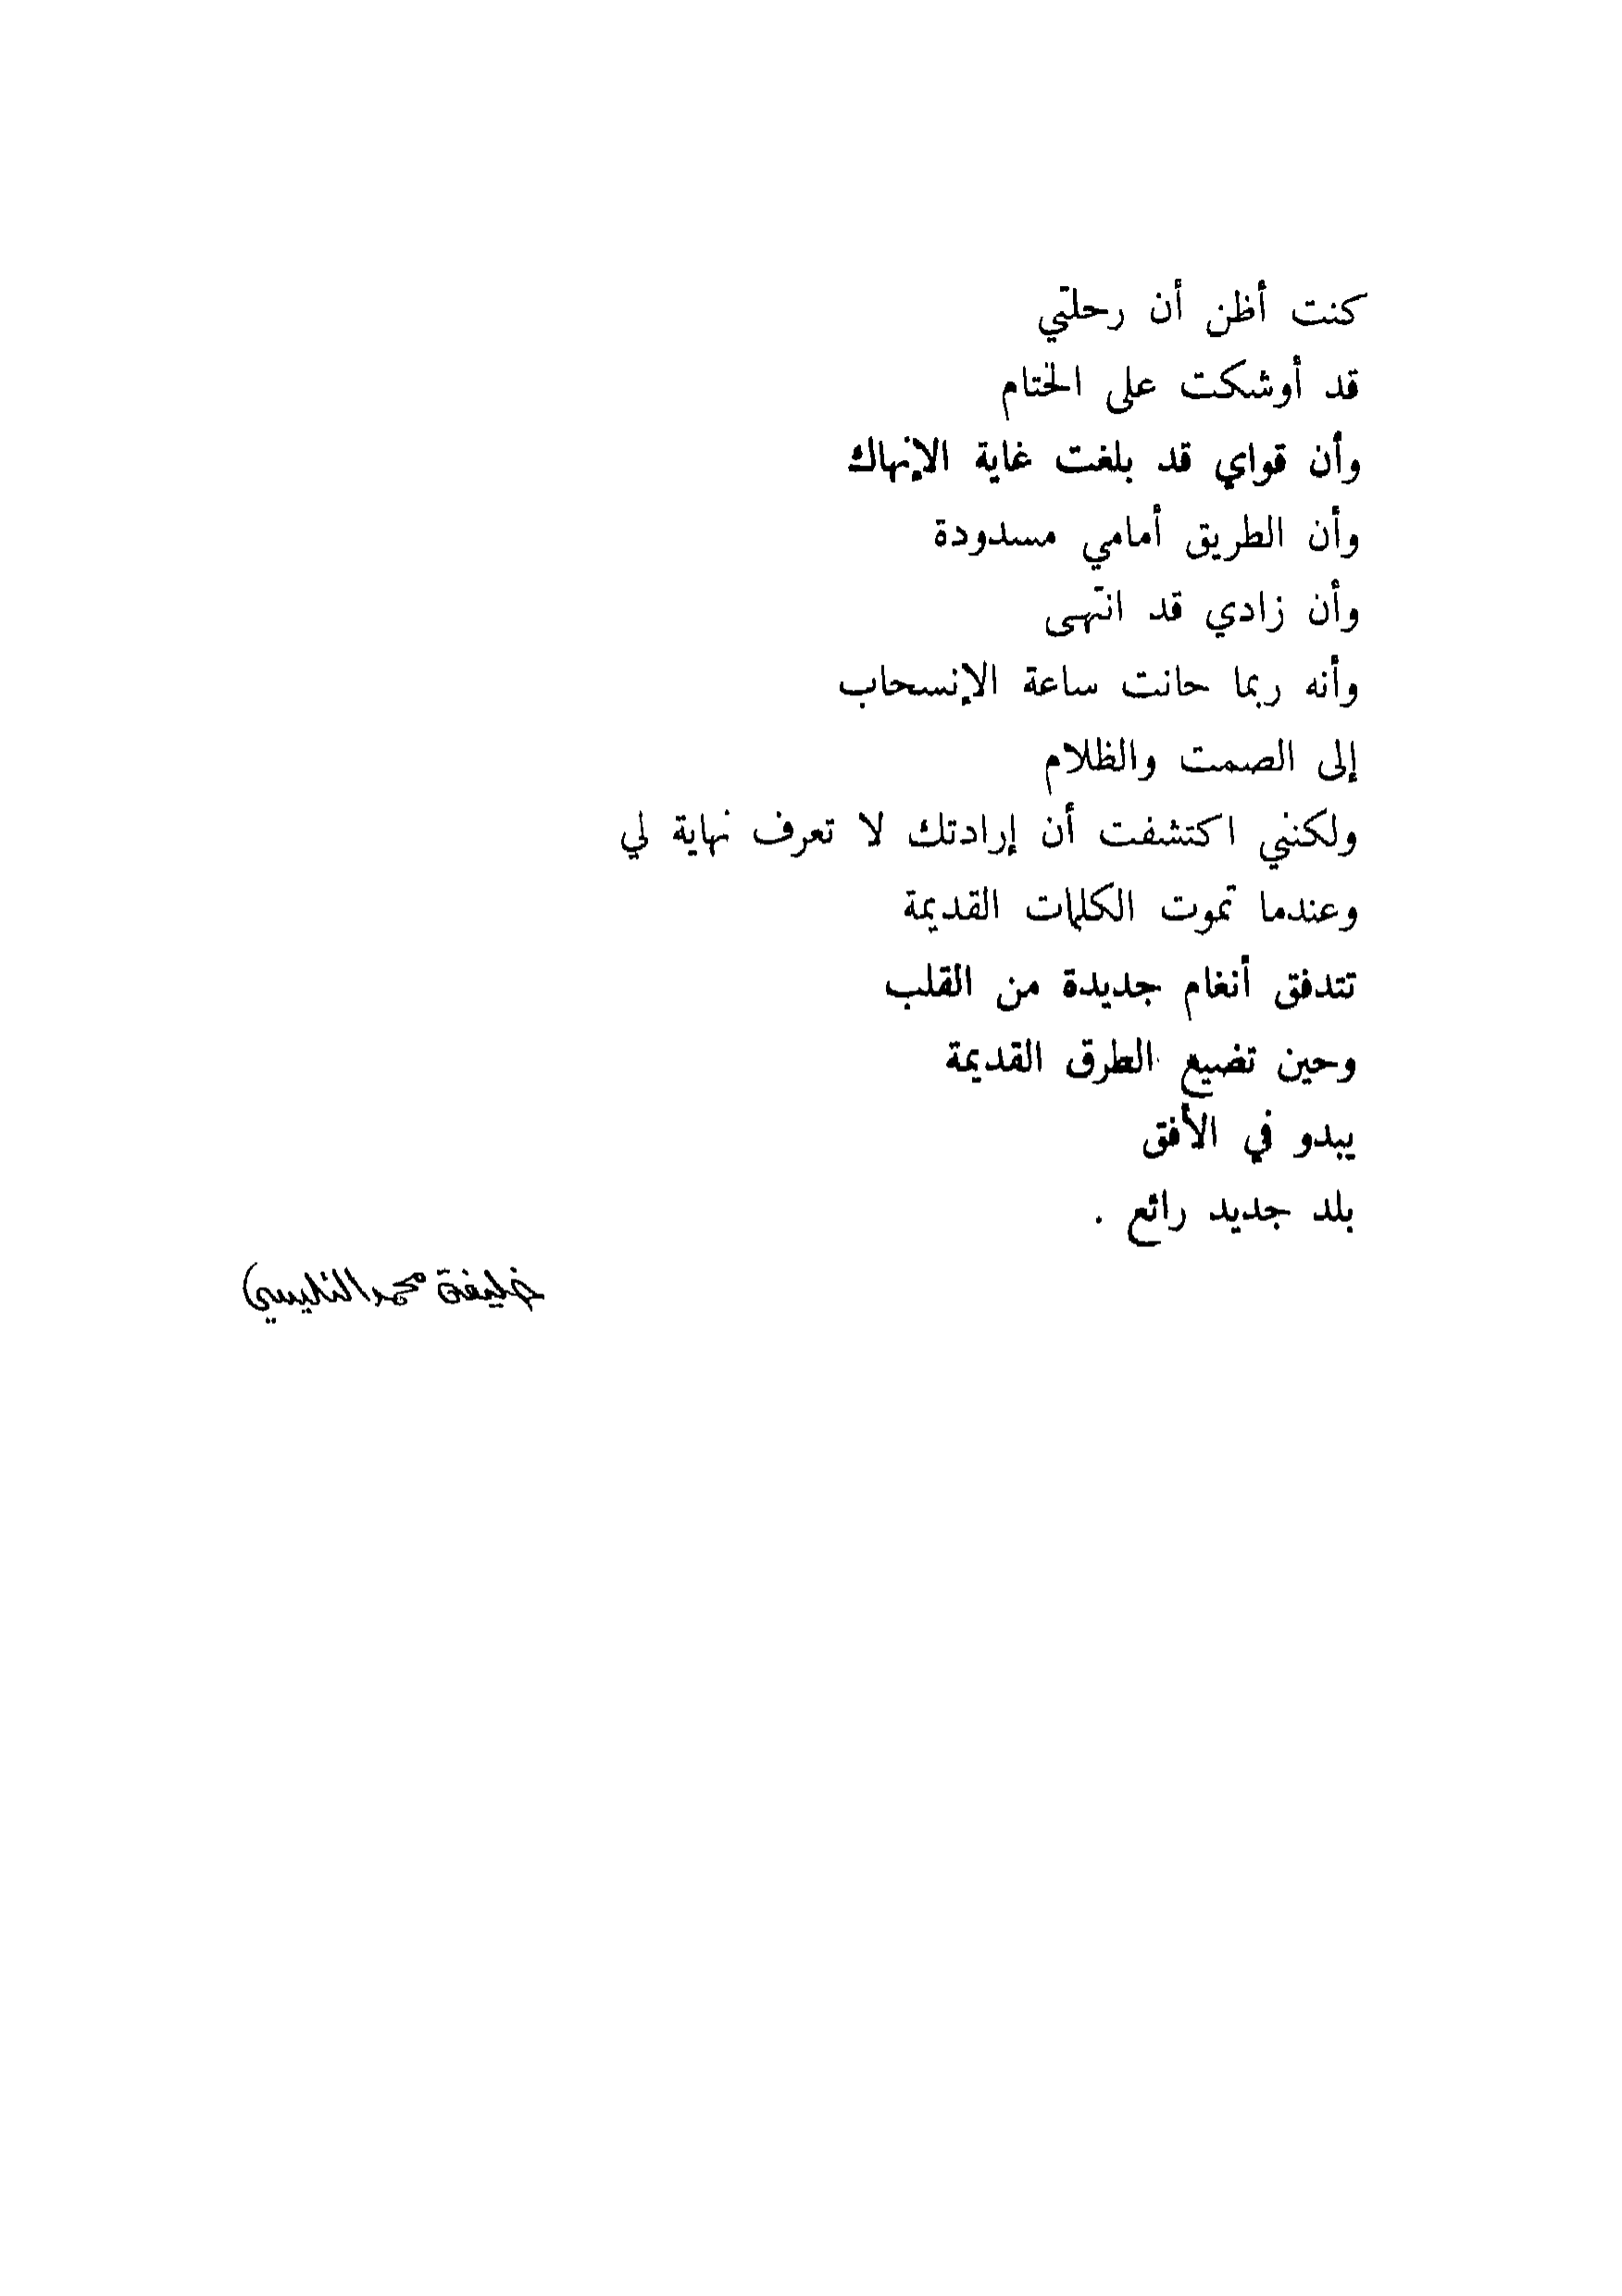 كنت أظن أن رحلتي
قد أوشكت على الختام
وأن قواي قد بلغت غاية الإنهاك
وأن الطريق أمامي مسدودة
وأن زادي قد انتهى
وأنه ربما حانت ساعة الإنسحاب
إلى الصمت والظلام
ولكنني اكتشفت أن إرادتك لا تعرف نهاية لي
وعندما تموت الكلمات القديمة
تتدفق أنغام جديدة من القلب
وحين تضيع الطرق القديمة
يبدو في الأفق
بلد جديد رائع .
خليفة محمد التليسي